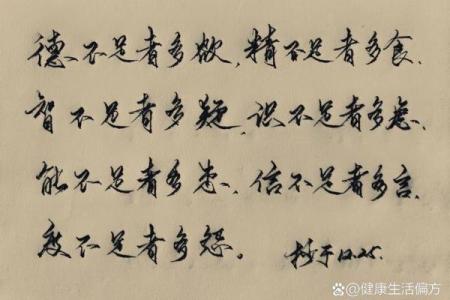 德不足者多欲，精不足者多食，
智不足者多疑，识不足者多虑，
能不足者多患，信不足者多言，
度不足者多怨。 抄于12.25.
@健康生活偏方